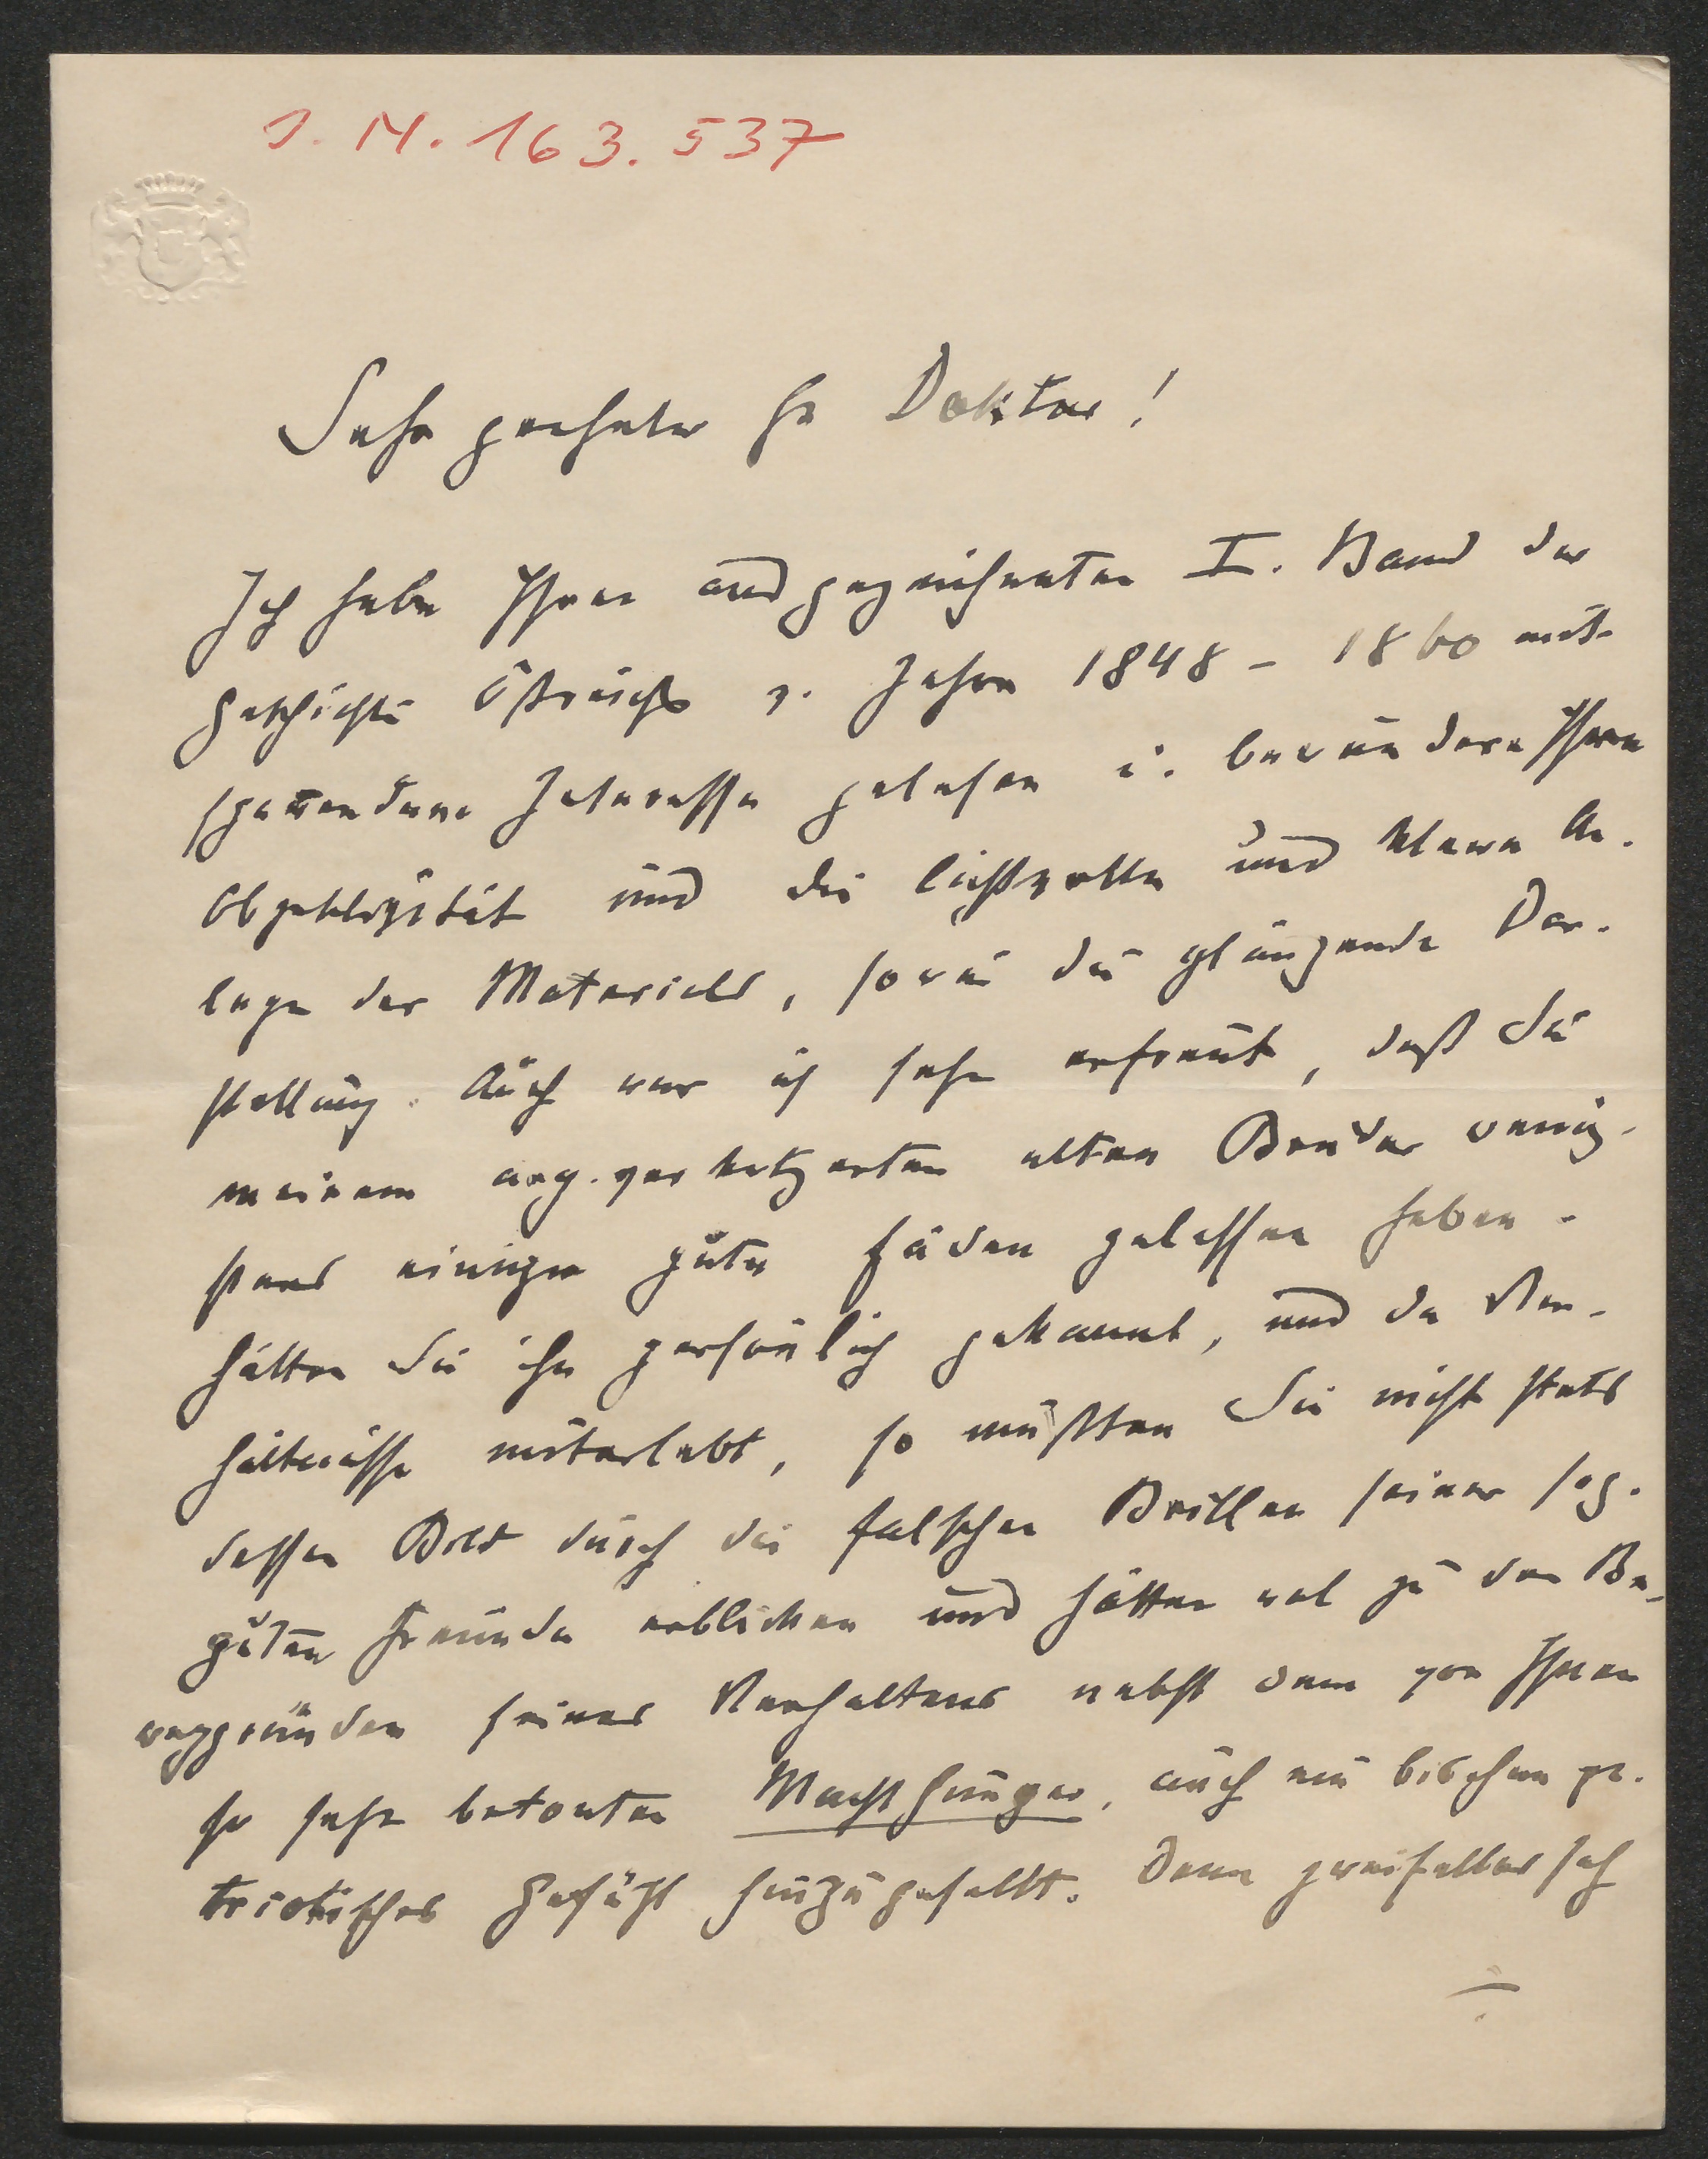 I. N. 163.537
Sehr geehrter Hr Doktor!
Ich habe Ihren ausgezeichneten I. Band der
Geschichte Östreichs v. Jahre 1848 – 1860 mit
spannendem Interesse gelesen u. bewundere Ihre
Objektivität und die lichtvolle und klare An-
lage des Materials, sowie die glänzende Dar-
stellung. Auch war ich sehr erfreut, daß Sie
meinem arg verketzerten alten Bruder wenig-
stens einige gute Fäden gelassen haben.
Hätten Sie ihn persönlich gekannt, und die Ver-
hältnisse miterlebt, so müßten Sie nicht stets
dessen Bild durch die falschen Brillen seiner sog.
guten Freunde erblicken und hätten wol zu den Be-
weggründen seines Verhaltens nebst dem von Ihnen
so sehr betonten Machthunger, auch ein bischen pa-
triotisches Gefühl hinzugesellt. Denn zweifellos sah